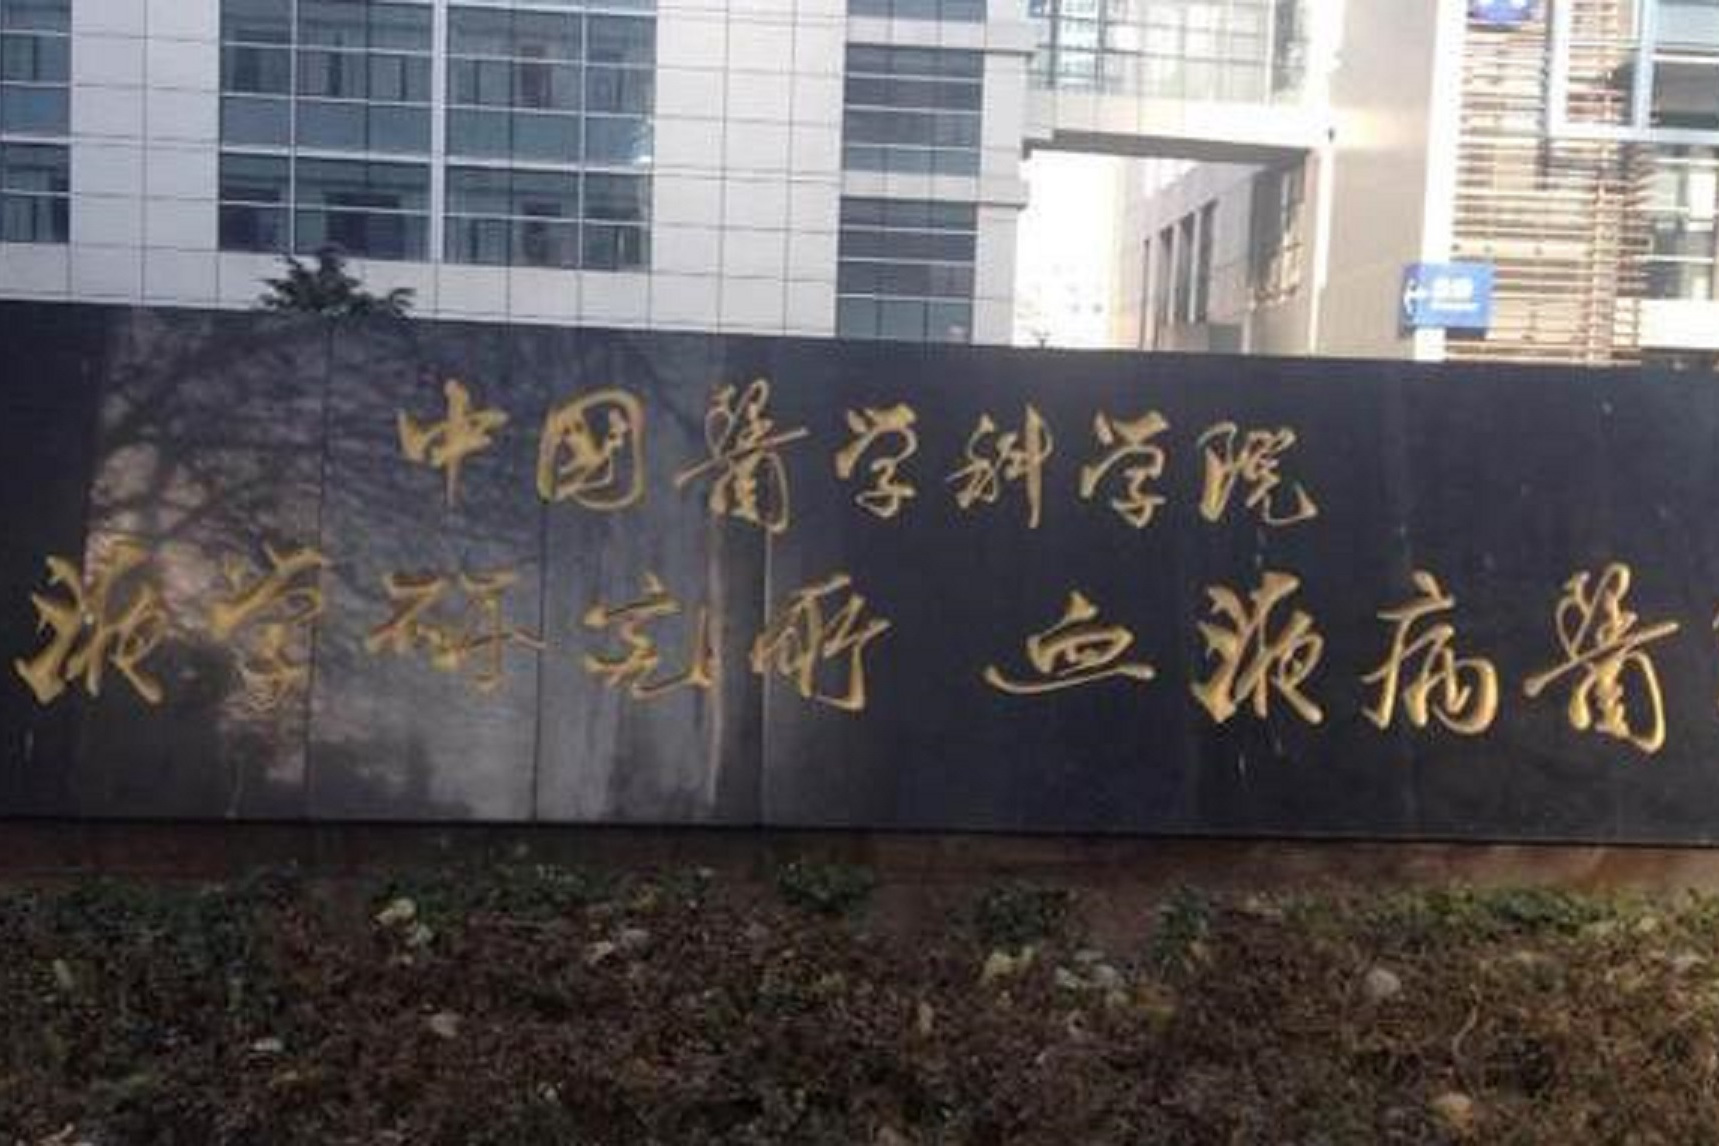 中国醫学科学院
液学研究所 血液病醫